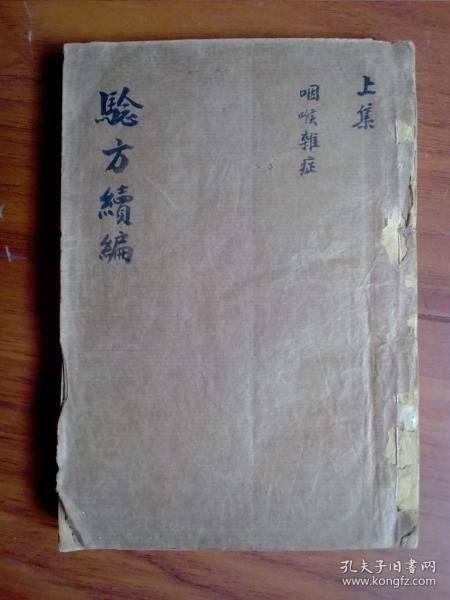 上集
咽喉雜症
騐方續編
孔夫子旧书网
www.kongfz.com